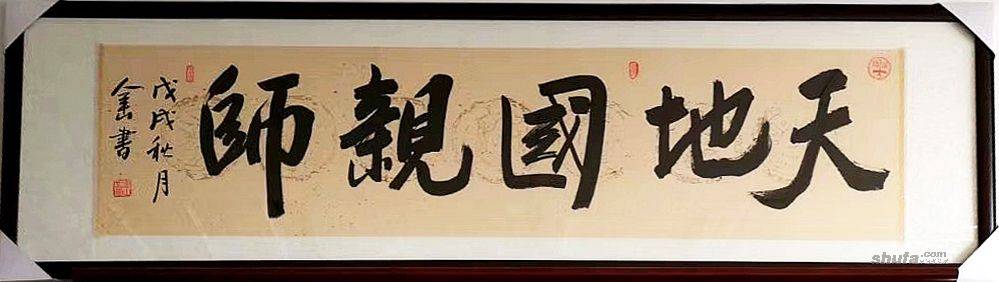 天地國親師
戊戌秋月
金書
shufa.com